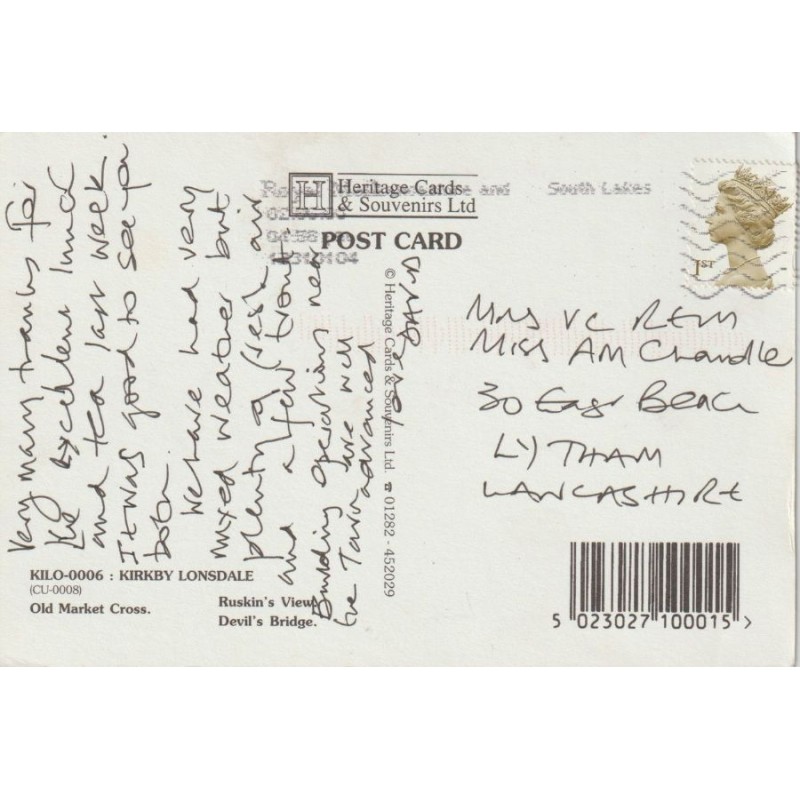 Very many thanks for
the excellent lunch
and tea last week.
It was good to see you
both.
We have had very
mixed weather but
plenty of fresh air
and a few trout.
Building operations near
the Tarn are well
advanced
H Heritage Cards
& Souvenirs Ltd
POST CARD
and South Lakes
1ST
© Heritage Cards & Souvenirs Ltd. ☎ 01282 - 452029
Miss AM Chandle
30 East Beach
LYTHAM
LANCASHIRE
KILO-0006 : KIRKBY LONSDALE
(CU-0008)
Old Market Cross.
Ruskin's View.
Devil's Bridge.
5 023027 100015 >